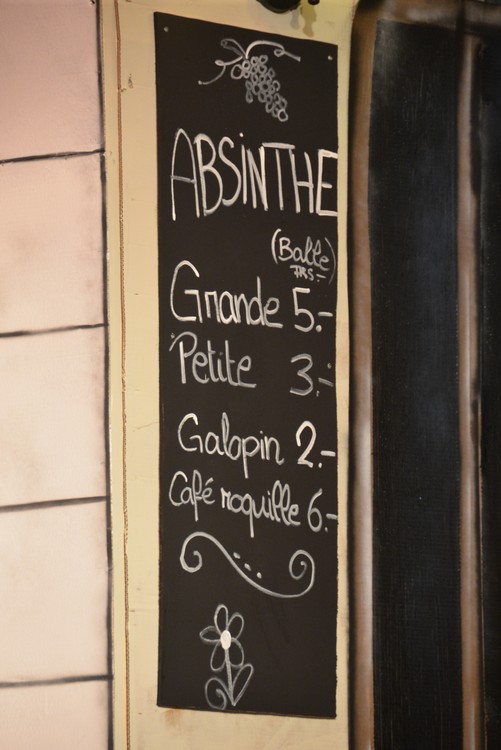 ABSINTHE
(Balle)
Grande 5.-
Petite 3.-
Galopin 2.-
Café roquille 6.-